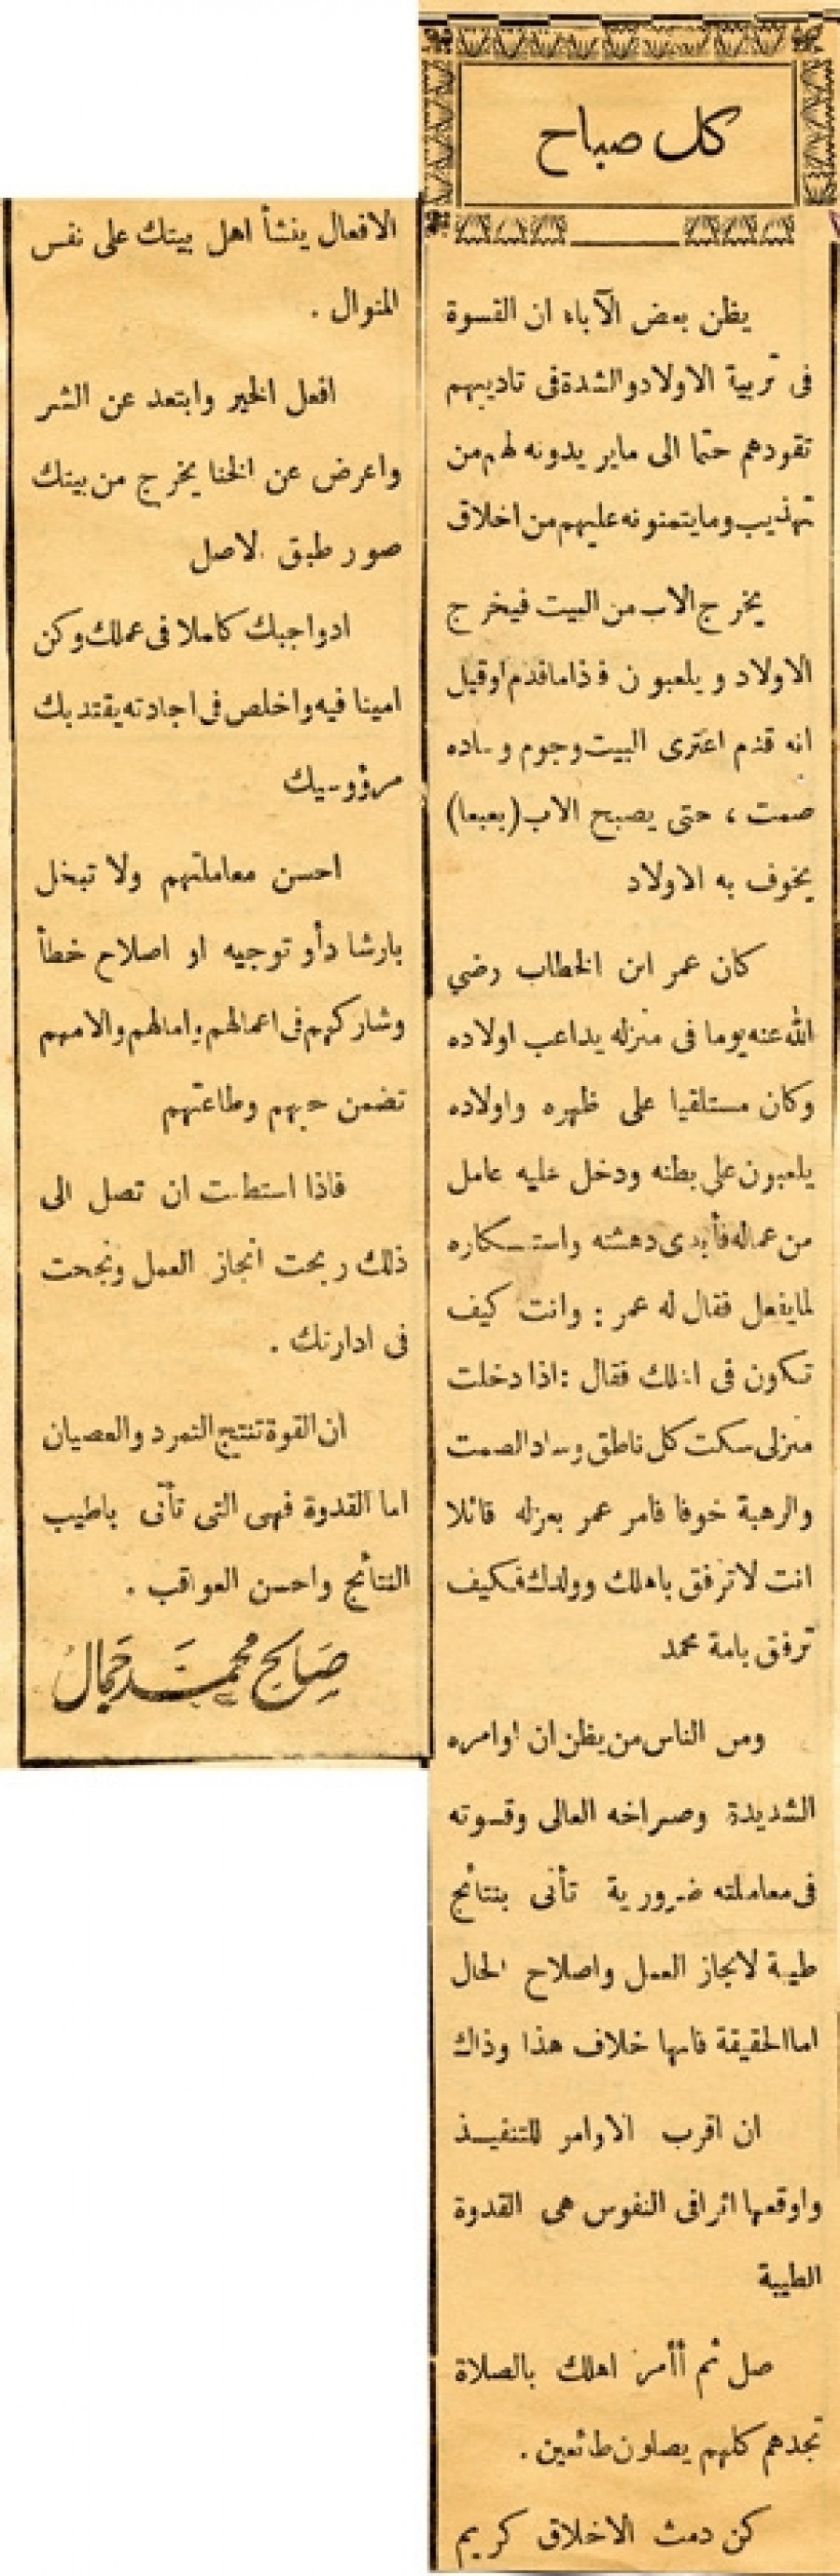 كل صباح
يظن بعض الآباء ان القسوة
فى تربية الاولاد والشدة فى تاديبهم
تقودهم حتما الى ما يريدونه لهم من
تهذيب وما يتمنونه عليهم من اخلاق
يخرج الاب من البيت فيخرج
الاولاد ويلعبون فذا ما قدم او قيل
انه قدم اعترى البيت وجوم وساده
صمت ، حتى يصبح الاب (بعبعا)
يخوف به الاولاد
كان عمر ابن الخطاب رضي
الله عنه يوما فى منزله يداعب اولاده
وكان مستلقيا على ظهره واولاده
يلعبون على بطنه ودخل عليه عامل
من عماله فأبدى دهشته واستنكاره
لما يفعل فقال له عمر : وانت كيف
تكون فى اهلك فقال : اذا دخلت
منزلى سكت كل ناطق وساد الصمت
والرهبة خوفا فامر عمر بعزله قائلا
انت لا ترفق باهلك وولدك فكيف
ترفق بامة محمد
ومن الناس من يظن ان اوامره
الشديدة وصراخه العالى وقسوته
فى معاملته ضرورية تأتى بنتائج
طيبة لانجاز العمل واصلاح الحال
اما الحقيقة فانها خلاف هذا وذاك
ان اقرب الاوامر للتنفيذ
واوقعها اثرا فى النفوس هى القدوة
الطيبة
صل ثم أأمر اهلك بالصلاة
تجدهم كلهم يصلون طائعين .
كن دمث الاخلاق كريم
الافعال ينشأ اهل بيتك على نفس
المنوال .
افعل الخير وابتعد عن الشر
واعرض عن الخنا يخرج من بيتك
صور طبق لاصل
اد واجبك كاملا فى عملك وكن
امينا فيه واخلص فى اجادته يقتد بك
مرؤوسيك
احسن معاملتهم ولا تبخل
بارشاد أو توجيه او اصلاح خطأ
وشاركهم فى اعمالهم وامالهم والامهم
تضمن حبهم وطاعتهم
فاذا استطعت ان تصل الى
ذلك ربحت انجاز العمل ونجحت
فى ادارتك .
ان القوة تنتج التمرد والعصيان
اما القدوة فهى التى تأتى باطيب
النتائج واحسن العواقب .
صالح محمد جمال